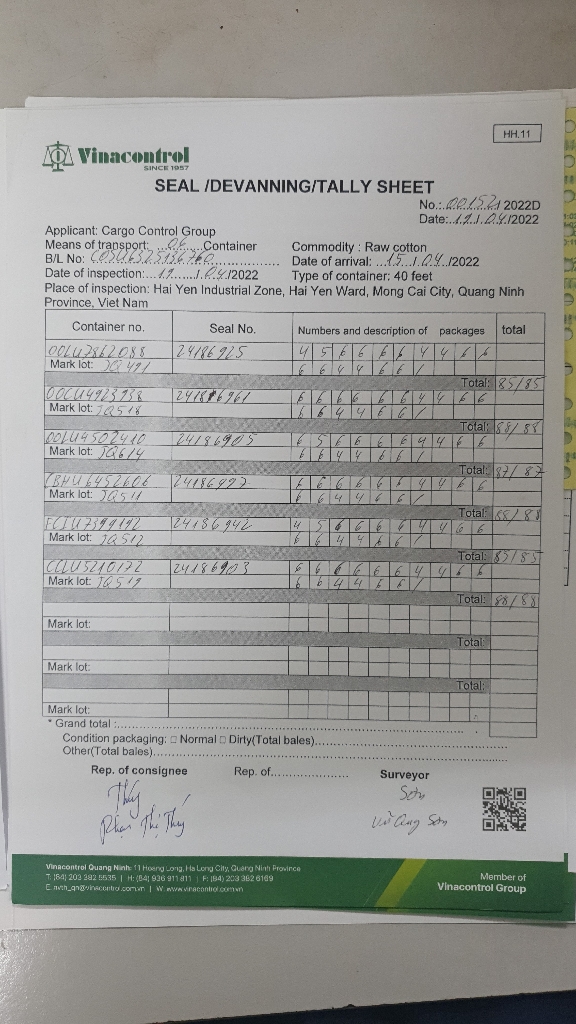 HH.11
Vinacontrol
SINCE 1957
SEAL /DEVANNING/TALLY SHEET
No.: 00152/ 2022D
Date: 19/04/2022
Applicant: Cargo Control Group
Means of transport: 06 Container
Commodity : Raw cotton
B/L No:
Date of arrival: 15/04/2022
Date of inspection: 19/04/2022
Type of container: 40 feet
Place of inspection: Hai Yen Industrial Zone, Hai Yen Ward, Mong Cai City, Quang Ninh
Province, Viet Nam
Container no. Seal No. Numbers and description of packages total
OOLU7862088 24186925 4 5 6 6 6 6 4 4 6 6
Mark lot: JQ491 6 6 4 4 6 6 /
Total: 85/85
OOCU4923938 6 6 6 6 6 6 4 4 6 6
Mark lot: JQ518 6 6 4 4 6 6 /
Total: 88/88
OOLU9502410 24186905 6 5 6 6 6 6 4 4 6 6
Mark lot: JQ614 6 6 4 4 6 6 /
Total: 87/87
CBHU6452606 6 6 6 6 6 6 4 4 6 6
Mark lot: JQ511 6 6 4 4 6 6 /
Total: 88/88
24186942 4 5 6 6 6 6 4 4 6 6
Mark lot: JQ512 6 6 4 4 6 6 /
Total: 85/85
24186903 6 6 6 6 6 6 4 4 6 6
Mark lot: JQ519 6 6 4 4 6 6 /
Total: 88/88
Mark lot:
Total:
Mark lot:
Total:
Mark lot:
* Grand total :
Condition packaging: □ Normal □ Dirty(Total bales)
Other(Total bales)
Rep. of consignee Rep. of Surveyor
Thúy Sơn
Phạm Thị Thúy Sơn
Vinacontrol Quang Ninh: 11 Hoang Long, Ha Long City, Quang Ninh Province
T: (84) 203 382 5535 | H: (84) 936 911 811 | F: (84) 203 382 6169
E: nvth_qn@vinacontrol.com.vn | W: www.vinacontrol.com.vn
Member of
Vinacontrol Group